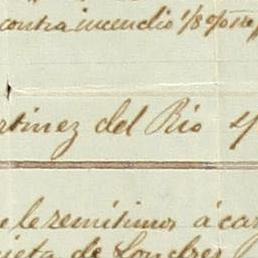 contra incendio 1/8 %
rtinez del Rio
e le remitimos á ca
ieta de Londres